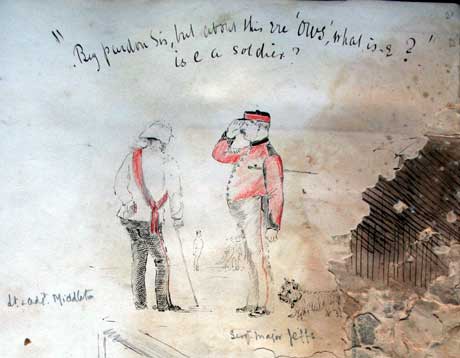 "Beg pardon Sir, but about this 'ere 'OWS', what is -e ?"
is e a soldier?
Lt & adjt. Middleton
Sergt major Jeffs